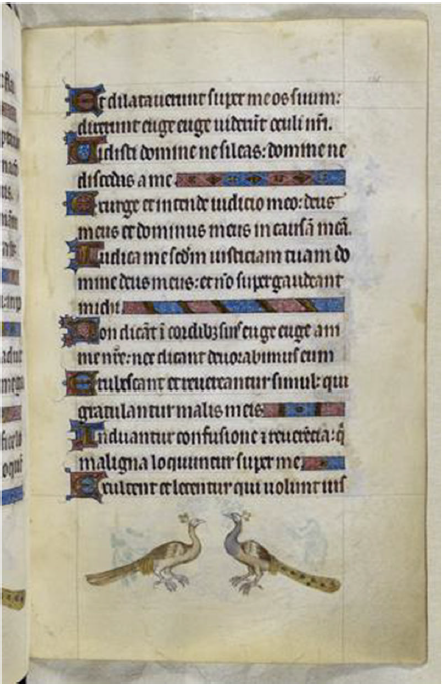 Et dilataverunt super me os suum:
dixerunt euge euge viderūt oculi nr̄i.
Vidisti domine ne sileas: domine ne
discedas a me
Exurge et intende iudicio meo: deus
meus et dominus meus in causā meā.
Iudica me scd̄m iusticiam tuam do
mine deus meus: et nō supergaudeant
michi
Non dicāt ī cordibꝫ suis euge euge ani
me nr̄e: nec dicant devorabimus eum
Erubescant et revereantur simul: qui
gratulantur malis meis
Induantur confusione ⁊ reverēcia: q̄
maligna loquuntur super me
Exultent et letentur qui volunt ius